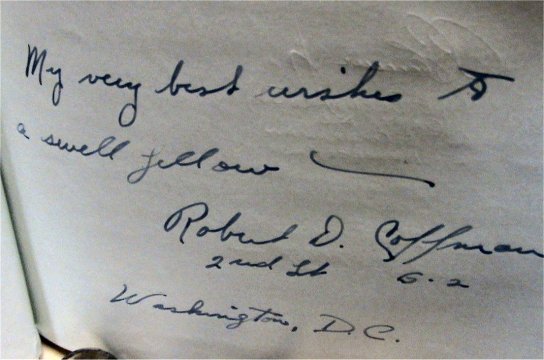 My very best wishes to
a swell fellow
Robert D. Coffman
2nd Lt G-2
Washington, D.C.